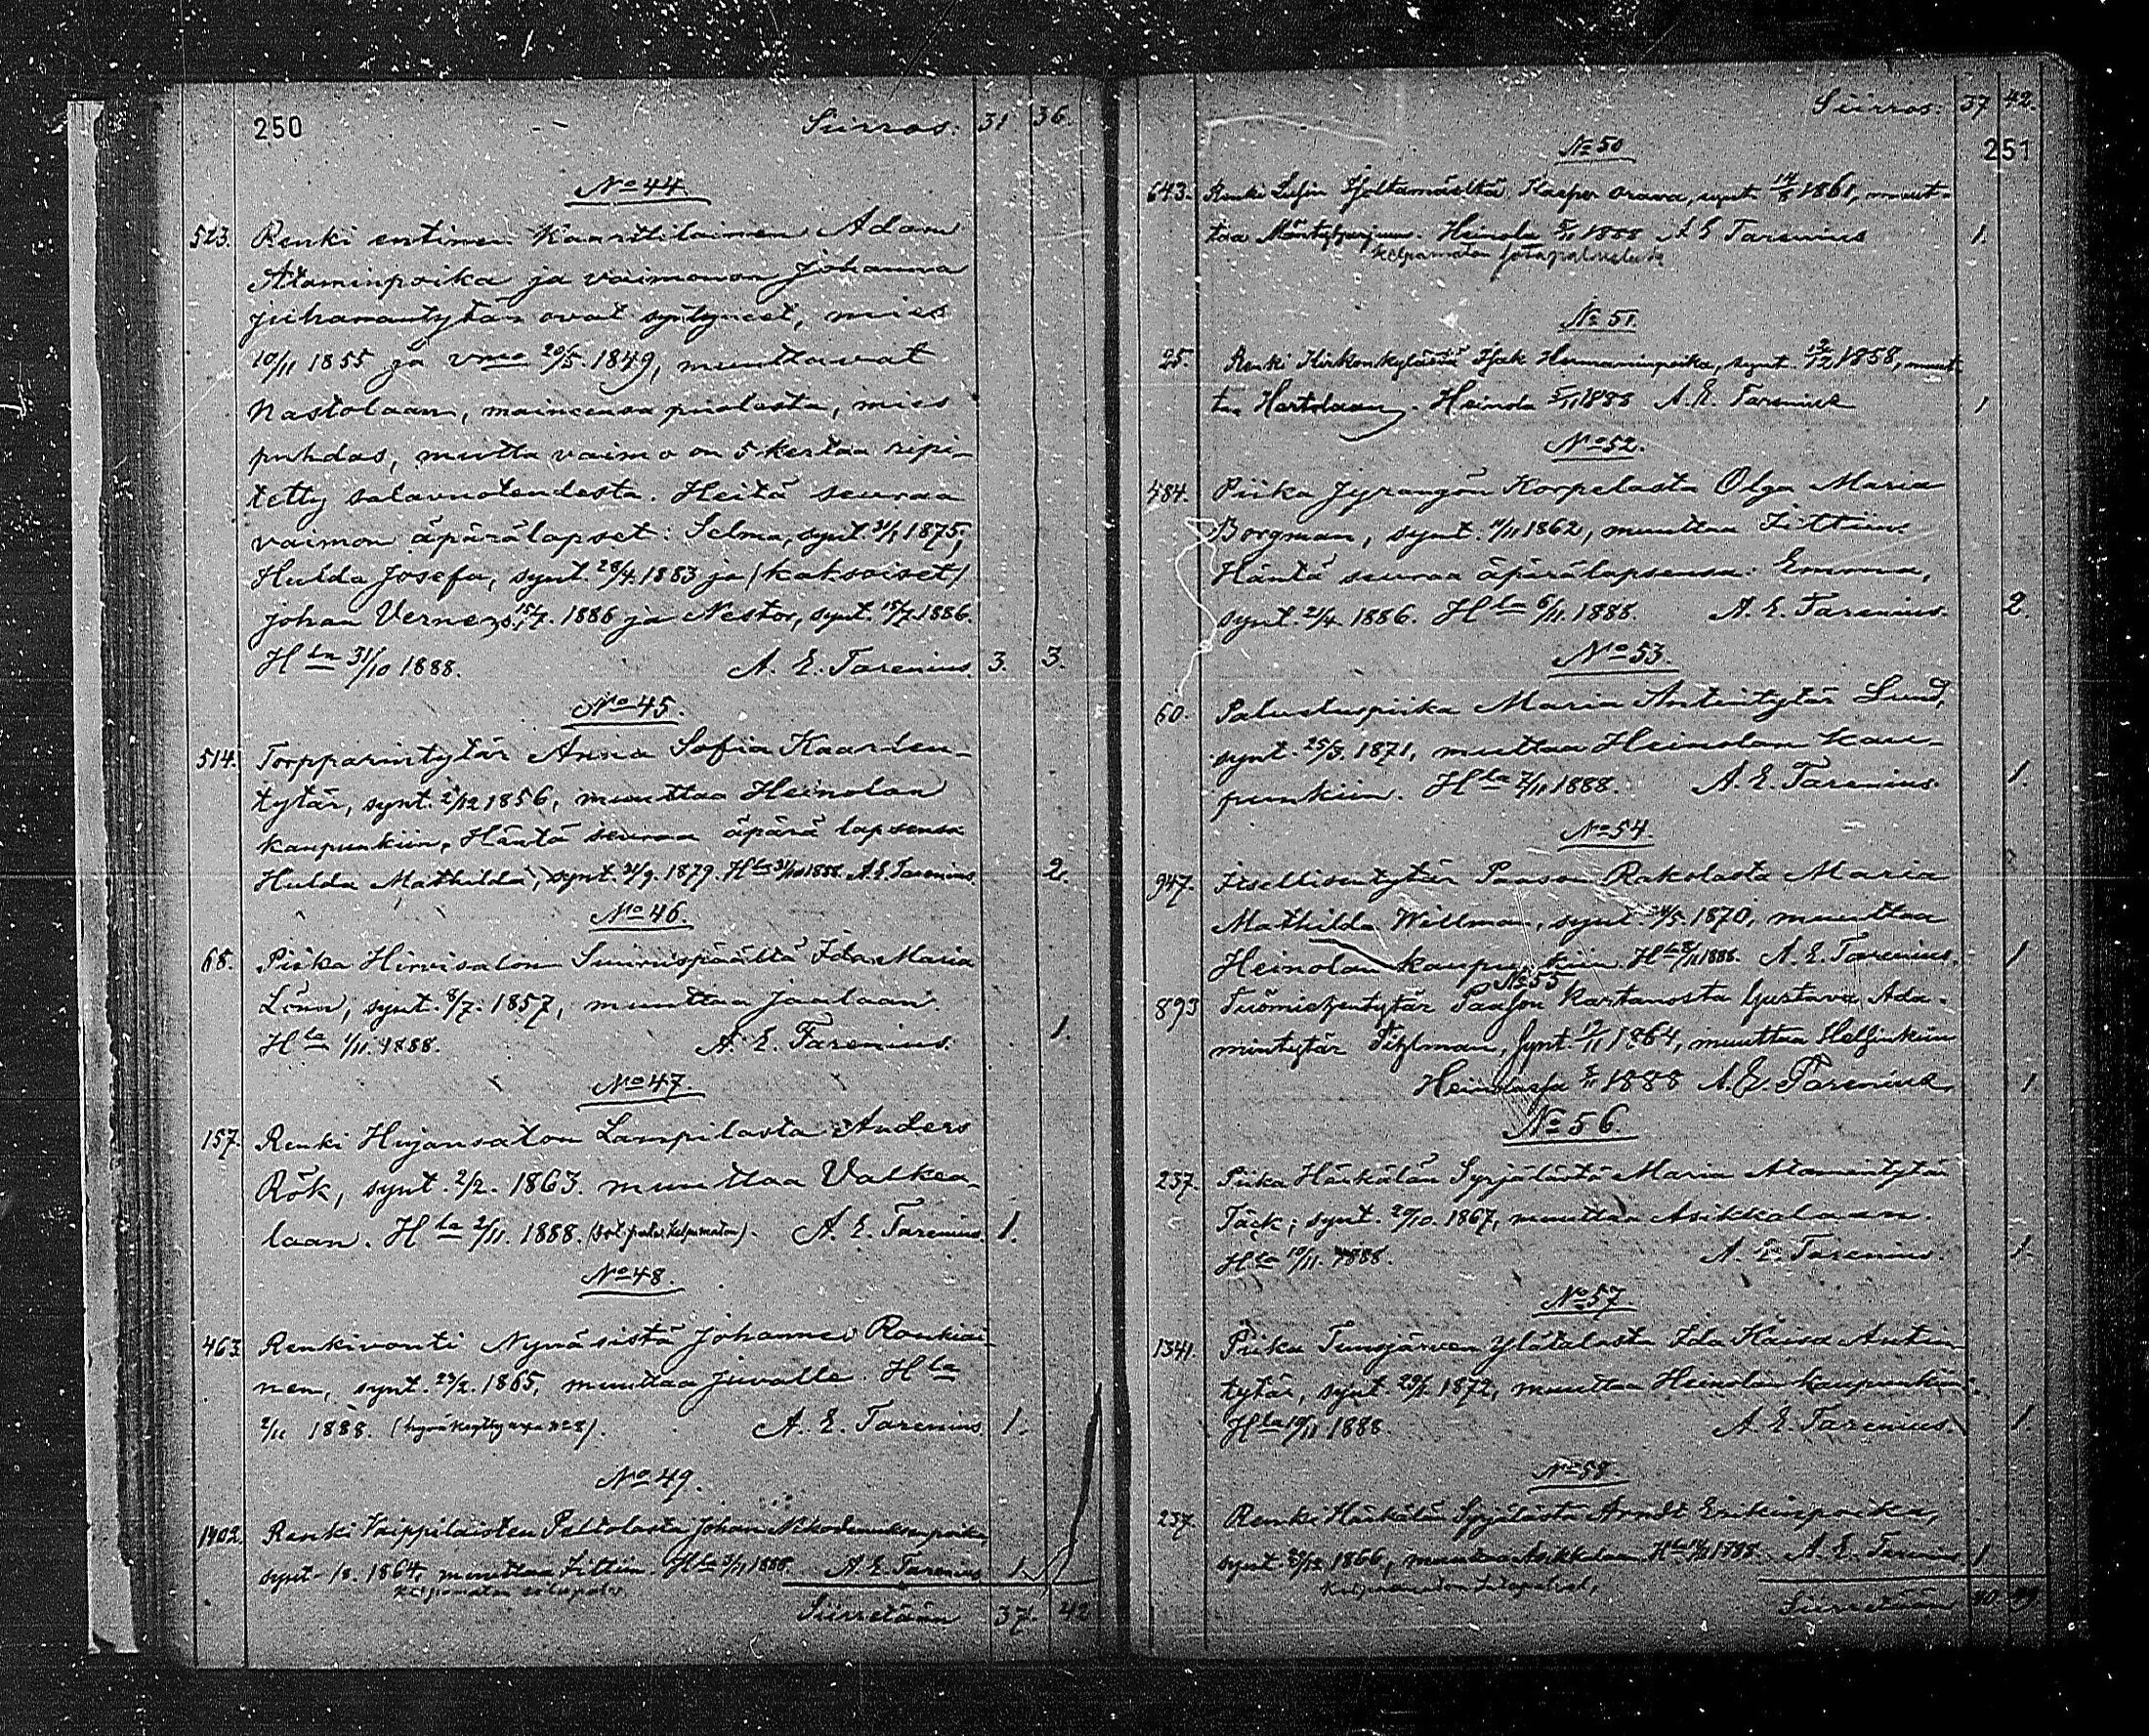 250 Siirros: 31 36.
No 44.
523. Renki entinen Kaartilainen Adam
Ataminpoika ja vaimonsa Johanna
Juhanantytär ovat syntyneet, mies
10/11 1855 ja vmo 20/5. 1849, muuttavat
Nastolaan, maineensa puolesta, mies
puhdas, mutta vaimo on 5 kertaa ripi-
tetty salavuoteudesta. Heitä seuraa
vaimon äpärälapset: Selma, synt. 31/1 1875,
Hulda Josefa, synt. 28/4. 1883 ja (kaksoiset)
Johan Verner, s. 15/7. 1886 ja Nestor, synt. 15/7. 1886.
Hla 31/10 1888. A. E. Tarenius. 3. 3.
No 45.
514. Torpparintytär Anna Sofia Kaarlen-
tytär, synt. 1856, muuttaa Heinolan
kaupunkiin. Häntä seuraa äpärä lapsensa
Hulda Mathilda, synt. 1879. Hla 31/10 1888. A. E. Tarenius. 2.
No 46.
68. Piika Hirvisalon Ida Maria
Lönn, synt. 8/7. 1857, muuttaa Jaalaan.
Hla 1/11. 1888. A. E. Tarenius. 1.
No 47.
157. Renki Hujansalon Lampilasta Anders
Rök, synt. 2/2. 1863. muuttaa Valkea-
laan. Hla 2/11. 1888. (sot. palv. kelpamaton). A. E. Tarenius. 1.
No 48.
463. Renkivouti Nynäsistä Johannes Ronkiai-
nen, synt. 23/2. 1865, muuttaa Juvalle. Hla
2/11 1888. A. E. Tarenius. 1.
No 49.
1402. Renki Vaippilaisten Peltolasta Johan Nikodemuksenpoika,
synt. 1864, muuttaa Iittiin. Hla 3/11 1888. A. E. Tarenius 1.
kelpamaton sotapalv.
Siirretään 37. 42
Siirros: 37 42.
251
No 50
643. Renki Lusin Kasper Orava, synt. 1861, muut-
taa Mäntyharjuun. Heinola 5/11 1888 A E Tarenius 1.
kelpamaton sotapalvelusta
No 51.
25. Renki Kirkonkylästä Isak Hermanninpoika, synt. 1858, muut-
taa Hartolaan. Heinola 5/11 1888 A. E. Tarenius 1
No 52.
484. Piika Jyrängön Korpelasta Olga Maria
Borgman, synt. 11/11 1862, muuttaa Iittiin.
Häntä seuraa äpärälapsensa: Emma,
synt. 21/4. 1886. Hla 6/11. 1888. A. E. Tarenius. 2.
No 53.
60. Palvelus piika Maria Antintytär Lund,
synt. 25/3. 1871, muuttaa Heinolan kau-
punkiin. Hla 7/11 1888. A. E. Tarenius. 1.
No 54.
947. Itsellisentytär Paason Rakolasta Maria
Mathilda Willman, synt. 1870, muuttaa
Heinolan kaupunkiin. Hla 8/11 1888. A. E. Tarenius. 1
No 55
893 Paason Kartanosta Gustava Ada-
mintytär synt. 1864, muuttaa Helsinkiin
Heinolassa 1888 A. E. Tarenius 1
No 56.
257. Piika Härkälän Syrjälästä Maria Atamintytär
Täck, synt. 20/10. 1867, muuttaa Asikkalaan.
Hla 10/11. 1888. A. E. Tarenius. 1.
No 57.
1341. Piika Tuusjärven Ylätalosta Ida Kaisa Antin-
tytär, synt. 1872, muuttaa Heinolan kaupunkiin.
Hla 10/11 1888. A. E. Tarenius. 1.
No 58.
257. Renki Härkälän Syrjälästä Erikinpoika,
synt. 1866, muuttaa Asikkalaan. Hla 1888. A. E. Tarenius. 1
Siirretään 40